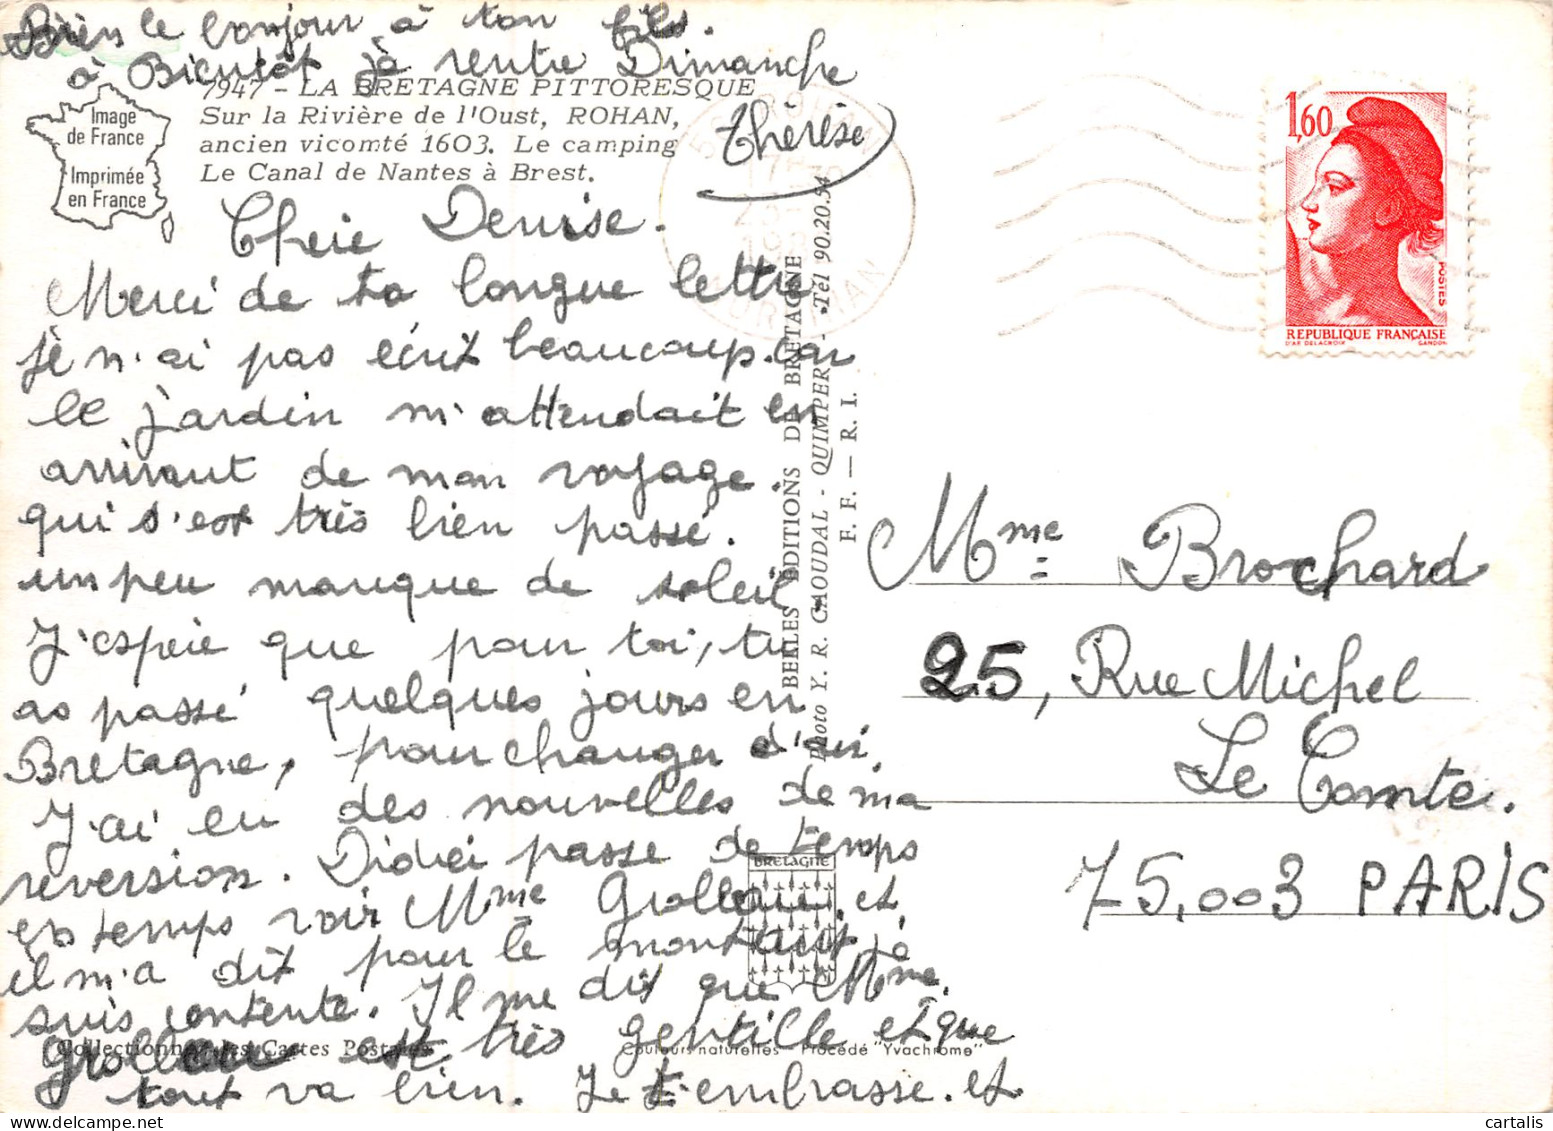 Bien le bonjour à ton fils.
à Bientôt je rentre Dimanche
Thérèse
7947 - LA BRETAGNE PITTORESQUE
Sur la Rivière de l'Oust, ROHAN,
ancien vicomté 1603. Le camping
Le Canal de Nantes à Brest.
Image
de France
Imprimée
en France
Cherie Denise.
Merci de ta longue lettre
je n'ai pas écrit beaucoup. car
le jardin m'attendait en
arrivant de mon voyage.
qui s'est très bien passé.
un peu manque de soleil
J'espere que pour toi, tu
as passé quelques jours en
Bretagne, pour changer d'air.
J'ai eu des nouvelles de ma
reversion. Didier passe de temps
en temps voir Mme Grolleau. et
il m'a dit pour le montant je
suis contente. Il me dit que Mme.
Grolleau est très gentille et que
tout va bien. Je t'embrasse. et
BELLES EDITIONS DE BRETAGNE
Photo Y. R. CAOUDAL - QUIMPER - Tél 90.20.54
F. F. — R. I.
BRETAGNE
Collectionnez les Cartes Postales
Couleurs naturelles - Procédé "Yvachrome"
1,60
POSTES
REPUBLIQUE FRANÇAISE
D'AP. DELACROIX GANDON
ROHAN
MORBIHAN
Mme Brochard
25, Rue Michel
Le Comte.
75.003 PARIS
cartalis